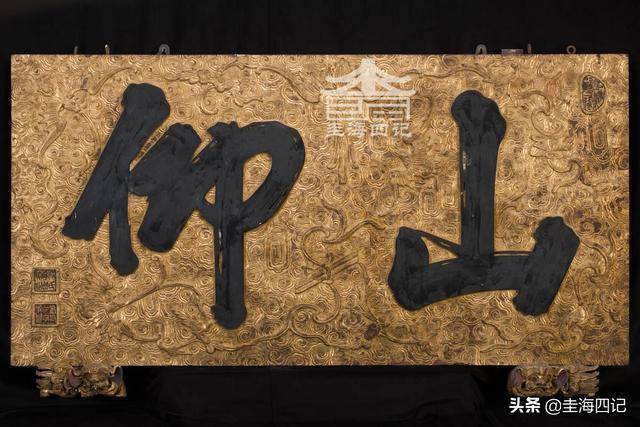 山仰
圭海四记
头条 @圭海四记